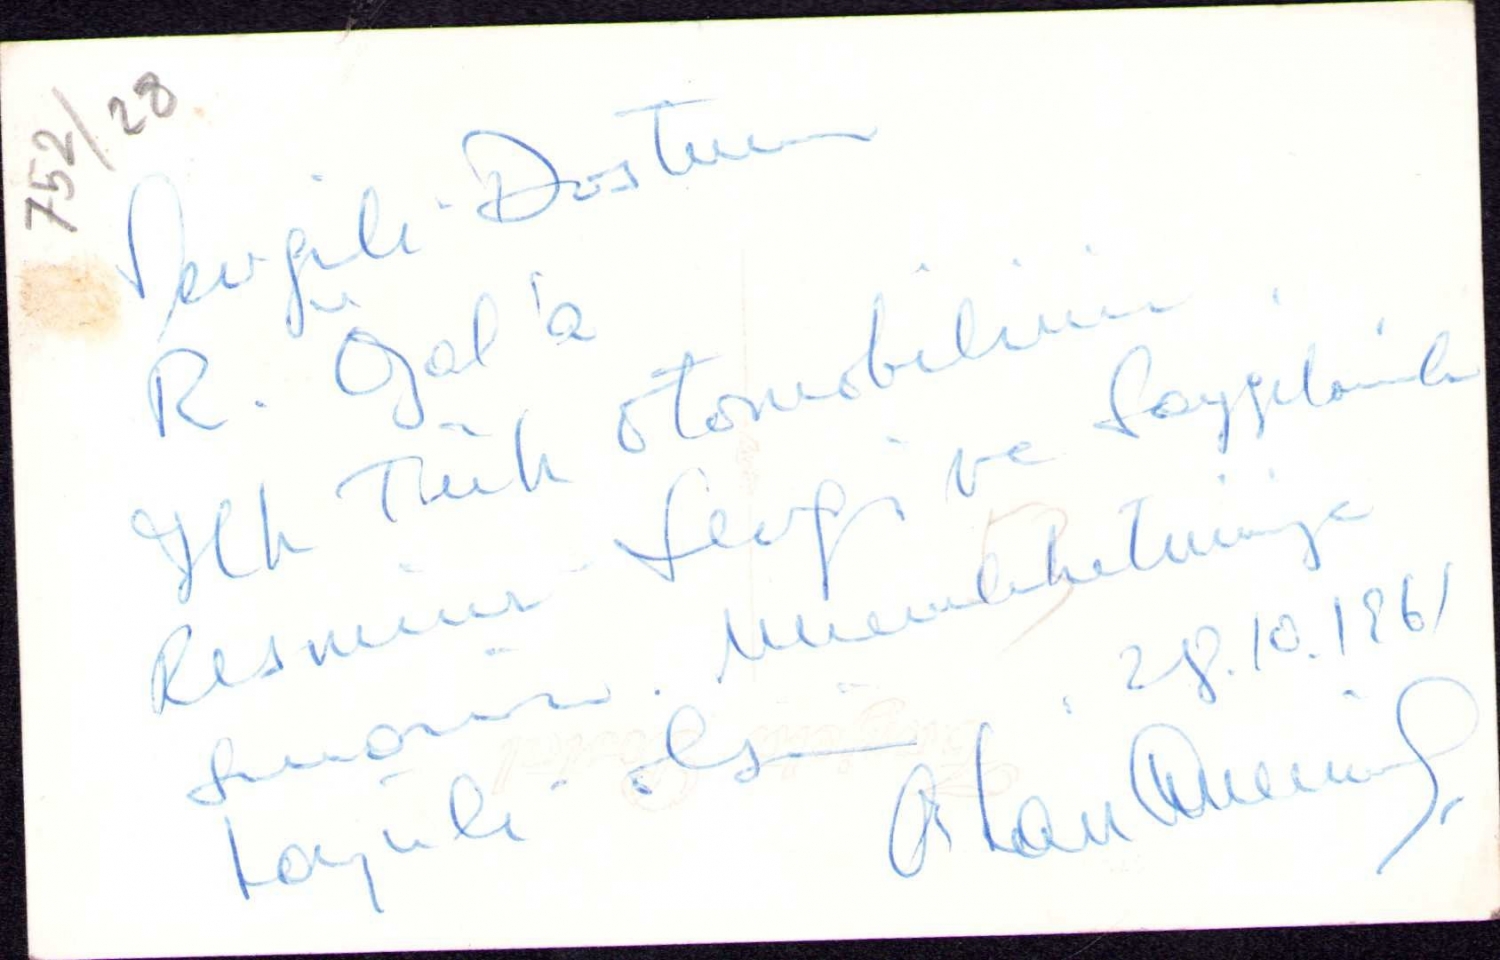 752/28
Sevgili Dostum
R. Özal'a
İlk Türk otomobilinin
Resmini Sevgi ve Saygılarımla
sunarım. Memleketimize
hayırlı olsun. 28.10.1961